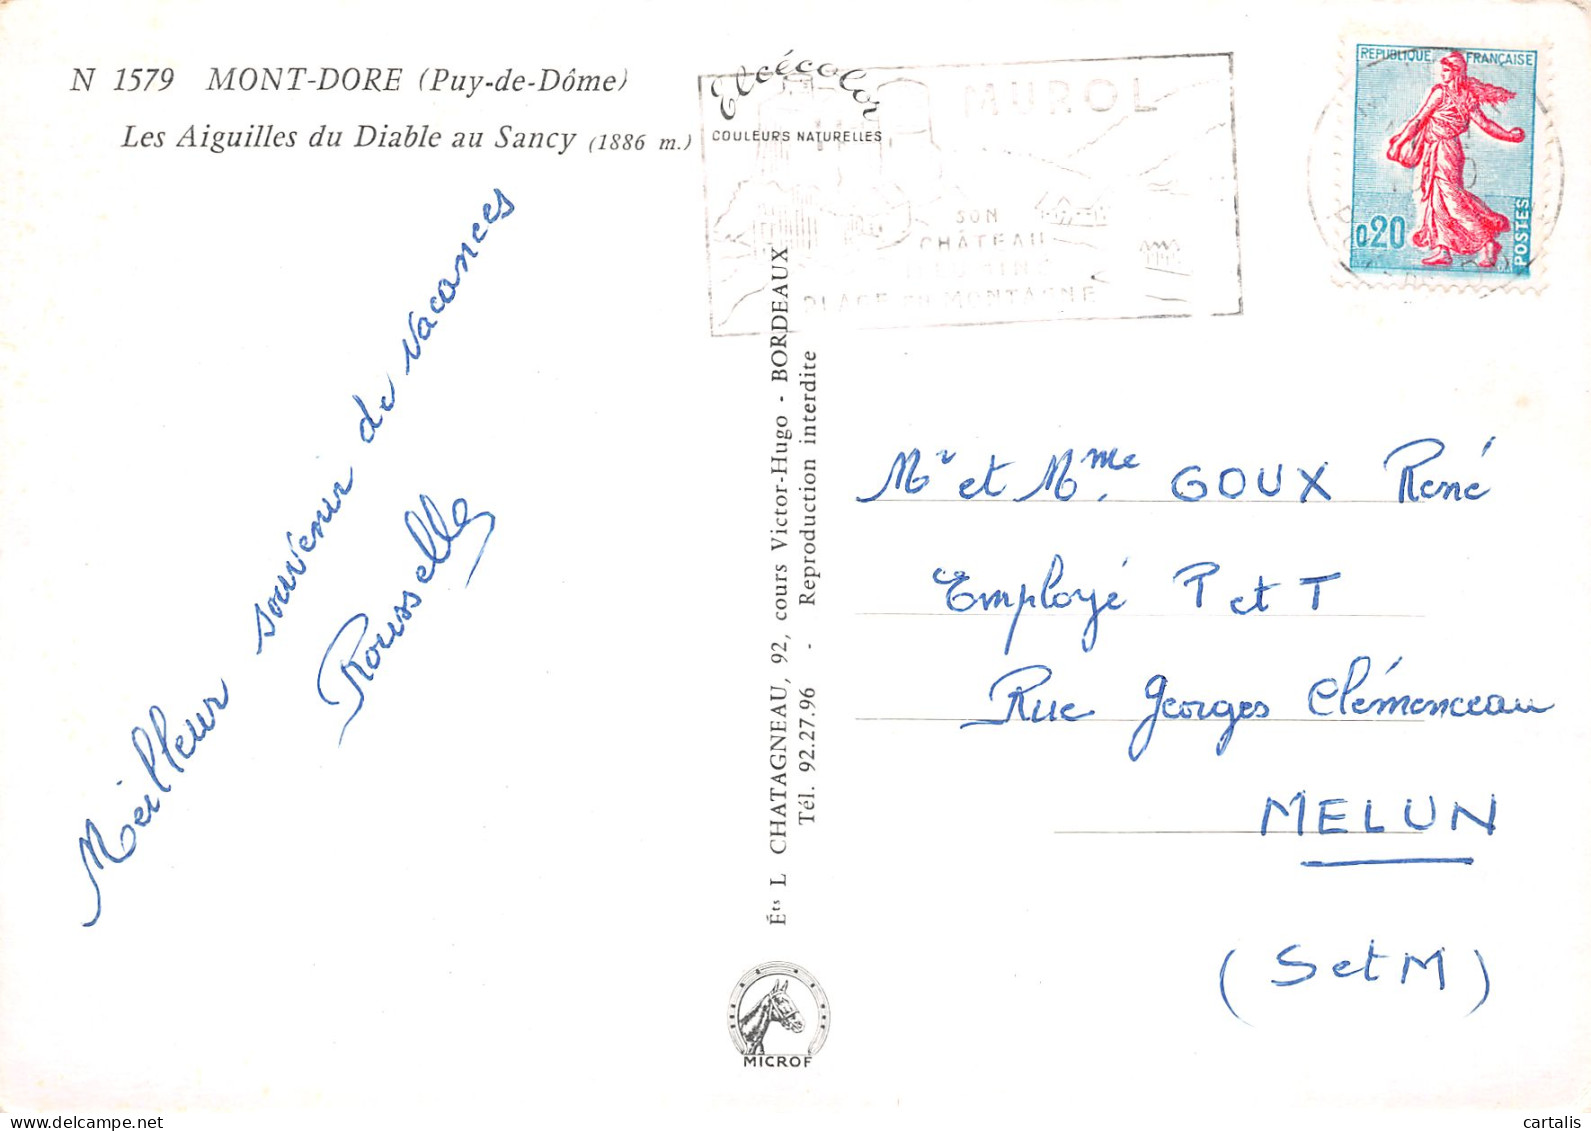 N 1579 MONT-DORE (Puy-de-Dôme)
Les Aiguilles du Diable au Sancy (1886 m.)
Meilleur souvenir de vacances
Rousselle
Elcécolor
COULEURS NATURELLES
MUROL
SON
CHÂTEAU
PLAGE EN MONTAGNE
REPUBLIQUE FRANÇAISE
0,20
POSTES
Éts L CHATAGNEAU, 92, cours Victor-Hugo - BORDEAUX
Tél. 92.27.96 - Reproduction interdite
MICROF
Mr et Mme. GOUX René
Employé P et T
Rue Georges Clémenceau
MELUN
(S et M)
delcampe.net
cartalis